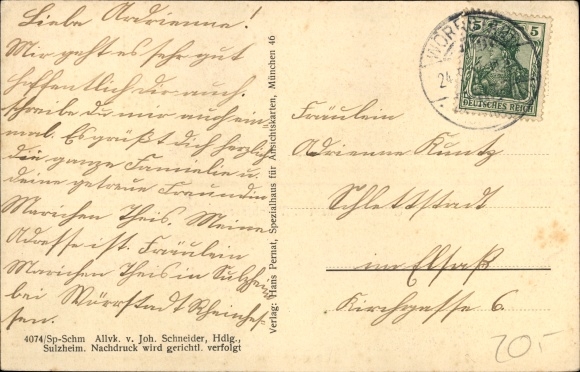 Liebe Adrienne!
Mir geht es sehr gut
hoffentlich dir auch.
schreibe du mir auch ein
mal. Es grüßt dich herzlich
die ganze Familie u.
deine getreue Freundin
Mariechen Theis. Meine
Adresse ist. Fräulein
Mariechen Theis in Sulzheim
bei Wörrstadt Rheinhes-
sen.
4074/Sp-Schm Allvk. v. Joh. Schneider, Hdlg.,
Sulzheim. Nachdruck wird gerichtl. verfolgt
Verlag: Hans Pernat, Spezialhaus für Ansichtskarten, München 46
5 5
DEUTSCHES REICH
24
Fräulein
Adrienne Kuntz
Schlettstadt
im Elsaß
Kirchgasse 6.
20.-